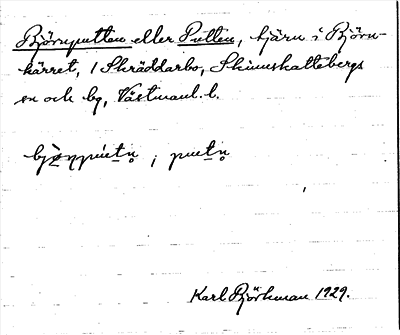 Björnputten eller Putten, tjärn i Björn-
kärret, / Skräddarbo, Skinnskattebergs
sn och bg, Västmanl. l.
bjö̀ɳpùtn̥ ; putn̥
Karl Björkman 1929.